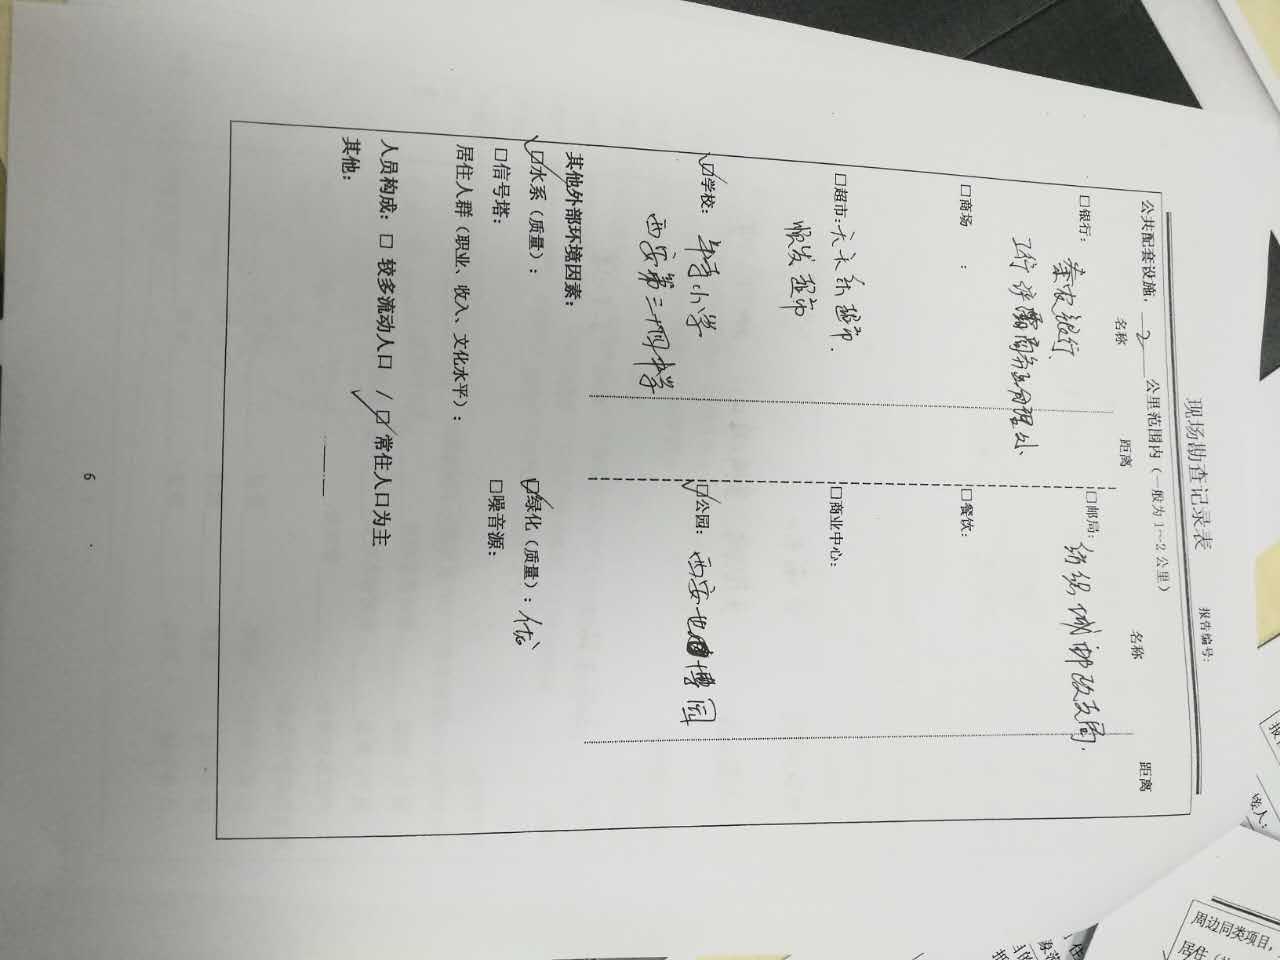 现场勘查记录表
报告编号:
公共配套设施, 2 公里范围内(一般为1~2公里)
名称 距离 名称 距离
□银行: 秦农银行 □邮局: 纺织城邮政支局.
工行浐灞商务区管理处
□商场 : □餐饮:
□超市: 天天乐超市. □商业中心:
顺发超市
☑学校: 小学 ☑公园: 西安世博园
西安第三十四中学
其他外部环境因素:
☑水系(质量): ☑绿化(质量): 优
□信号塔: □噪音源:
居住人群(职业、收入、文化水平):
人员构成: □ 较多流动人口 / ☑ 常住人口为主
其他:
6
周边同类项目,
居住